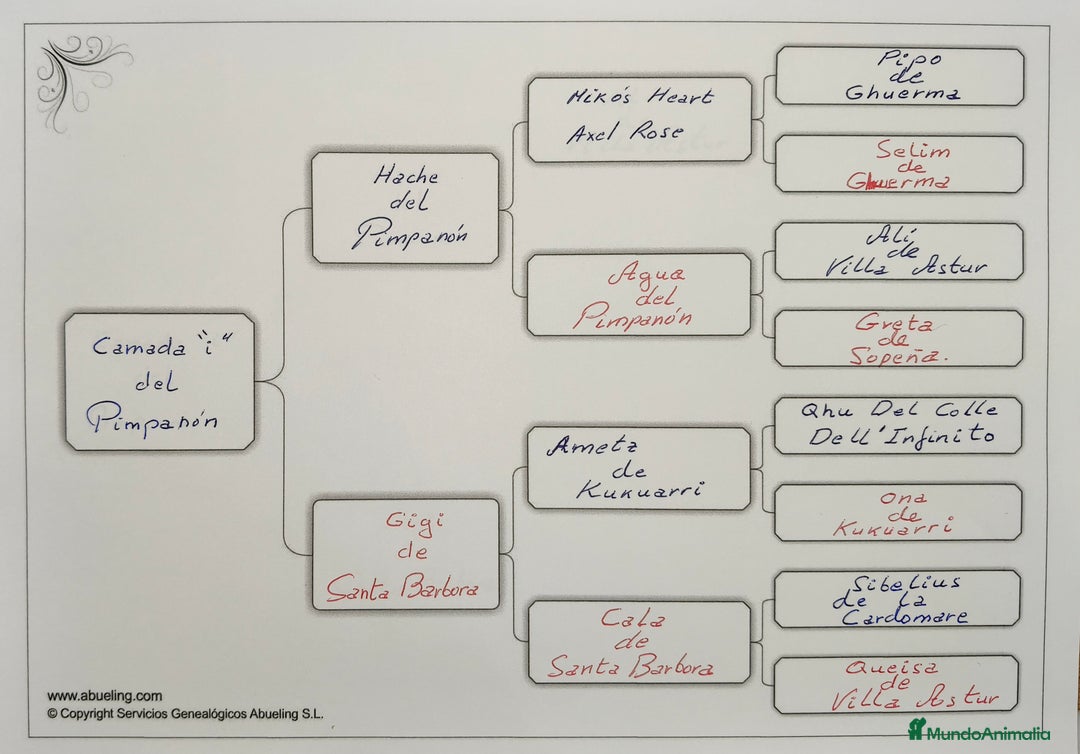 Camada "i"
del
Pimpanón
Hache
del
Pimpanón
Gigi
de
Santa Barbora
Miko's Heart
Axel Rose
Agua
del
Pimpanón
Ametz
de
Kukuarri
Cala
de
Santa Barbora
Pipo
de
Ghuerma
Selim
de
Ghuerma
Alí
de
Villa Astur
Greta
de
Sopeña.
Qhu Del Colle
Dell'Infinito
Ona
de
Kukuarri
Sibelius
de la
Cardomare
Queisa
de
Villa Astur
www.abueling.com
© Copyright Servicios Genealógicos Abueling S.L.
MundoAnimalia